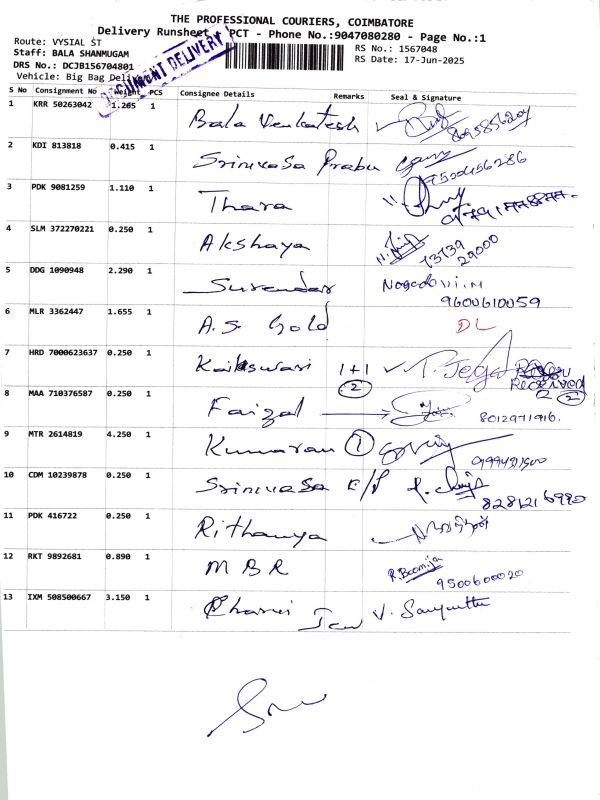 THE PROFESSIONAL COURIERS, COIMBATORE
Delivery Runsheet - PCT - Phone No.:9047080280 - Page No.:1
Route: VYSIAL ST
RS No.: 1567048
Staff: BALA SHANMUGAM
RS Date: 17-Jun-2025
DRS No.: DCJB156704801
Vehicle: Big Bag Delivery
DOCUMENT DELIVERY
S No Consignment No Weight PCS Consignee Details Remarks Seal & Signature
1 KRR 50263042 1.265 1 Bala Venkatesh
2 KDI 813818 0.415 1 Srinivasa Prabu 7500456286
3 PDK 9081259 1.110 1 Thara
4 SLM 372270221 0.250 1 Akshaya 73739
29000
5 DDG 1090948 2.290 1 Surendar
9600610059
6 MLR 3362447 1.655 1 A.S. Gold DL
7 HRD 7000623637 0.250 1 1+1
2 Received
2 2
8 MAA 710376587 0.250 1 Faizal 8012971916.
9 MTR 2614819 4.250 1 Kumaran 1
10 CDM 10239878 0.250 1 Srinivasa E/P
11 PDK 416722 0.250 1 Rithanya
12 RKT 9892681 0.890 1 M B R R. Boomija
9500600020
13 IXM 508500667 3.150 1